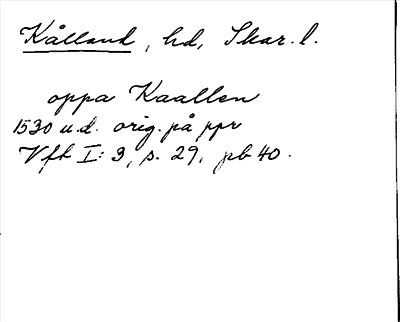 Kålland, hd, Skar. l.
oppa Kaallen
1530 u.d. orig. på ppr
Vfk I: 3, s. 29, pb 40.